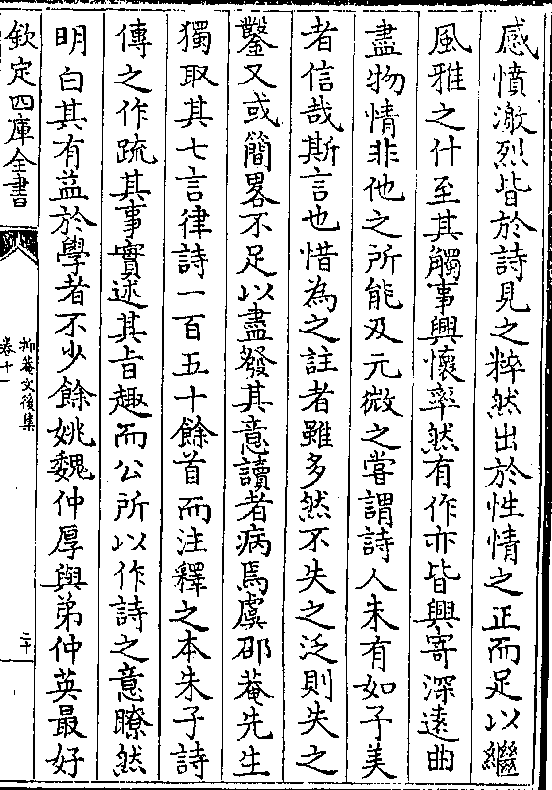 感憤激烈皆於詩見之粹然出於性情之正而足以繼
風雅之什至其觸事興懷率然有作亦皆興寄深遠曲
盡物情非他之所能及元微之嘗謂詩人未有如子美
者信哉斯言也惜為之註者雖多然不失之泛則失之
鑿又或簡畧不足以盡發其意讀者病焉虞邵菴先生
獨取其七言律詩一百五十餘首而注釋之本朱子詩
傳之作疏其事實述其旨趣而公所以作詩之意瞭然
明白其有益於學者不少餘姚魏仲厚與弟仲英最好
欽定四庫全書
抑菴文後集
卷十一
二十